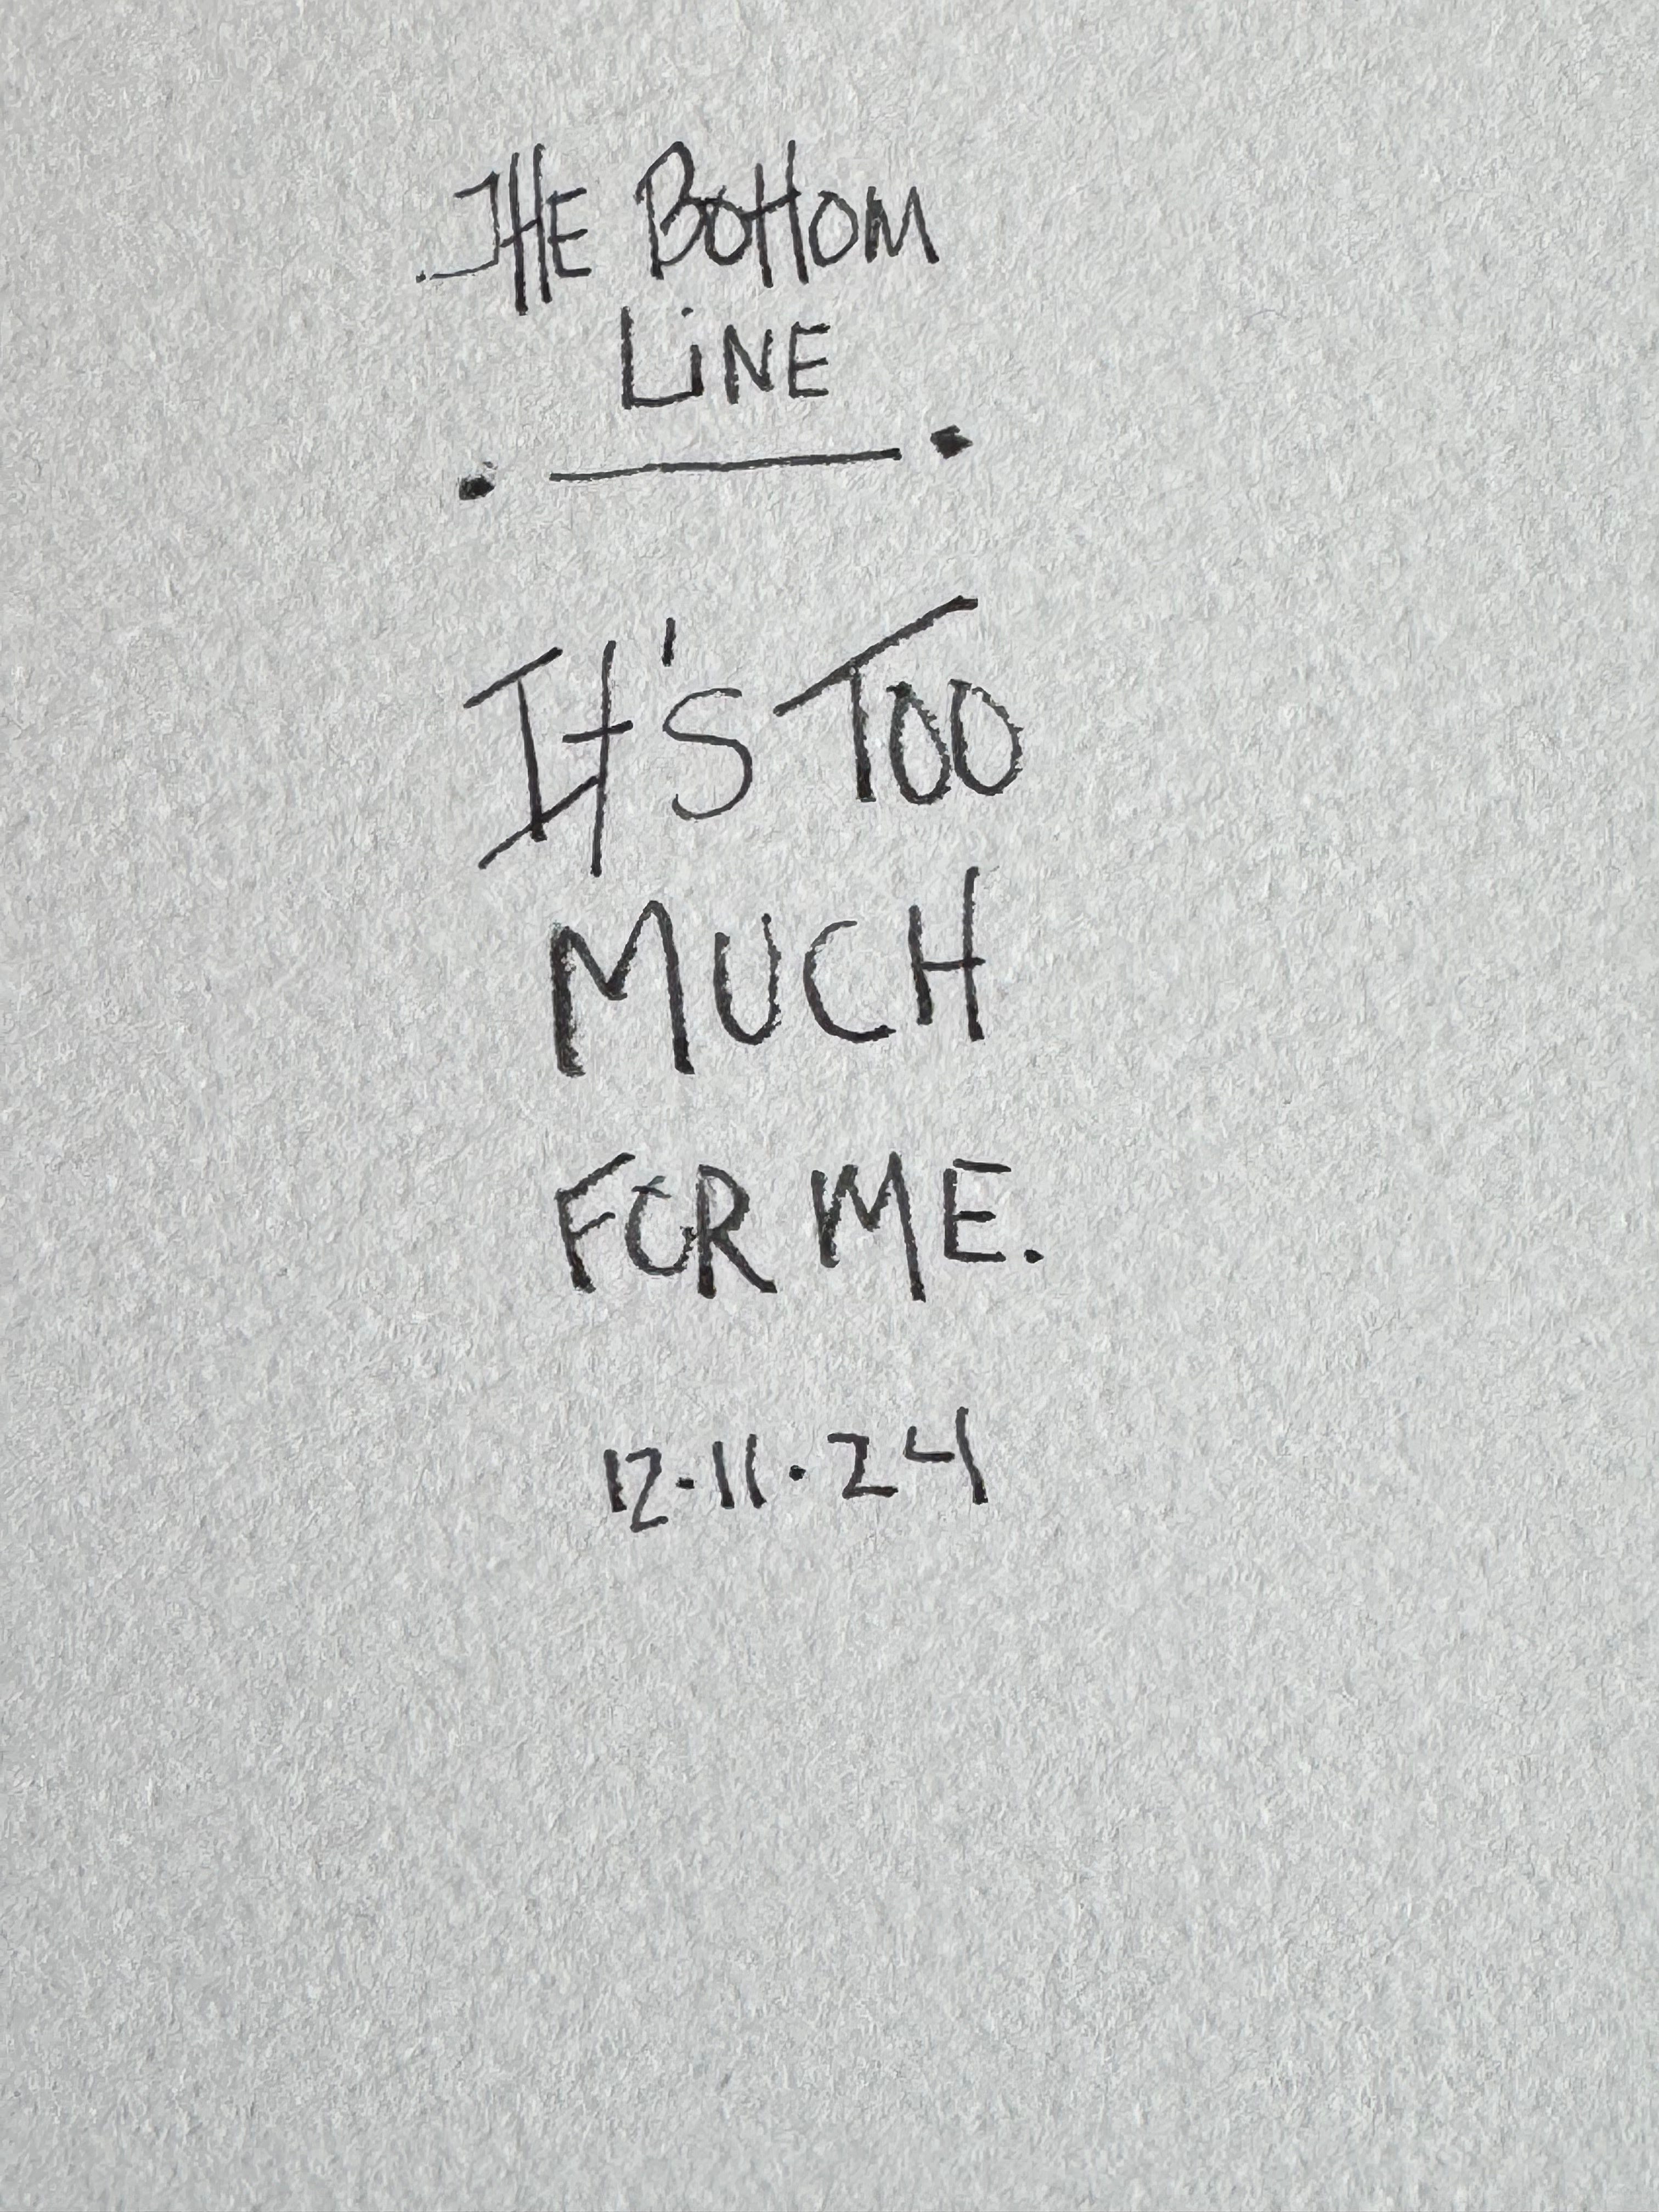 THE BOttOM
LiNE
It's TOO
MUCH
FOR ME.
12.11.24